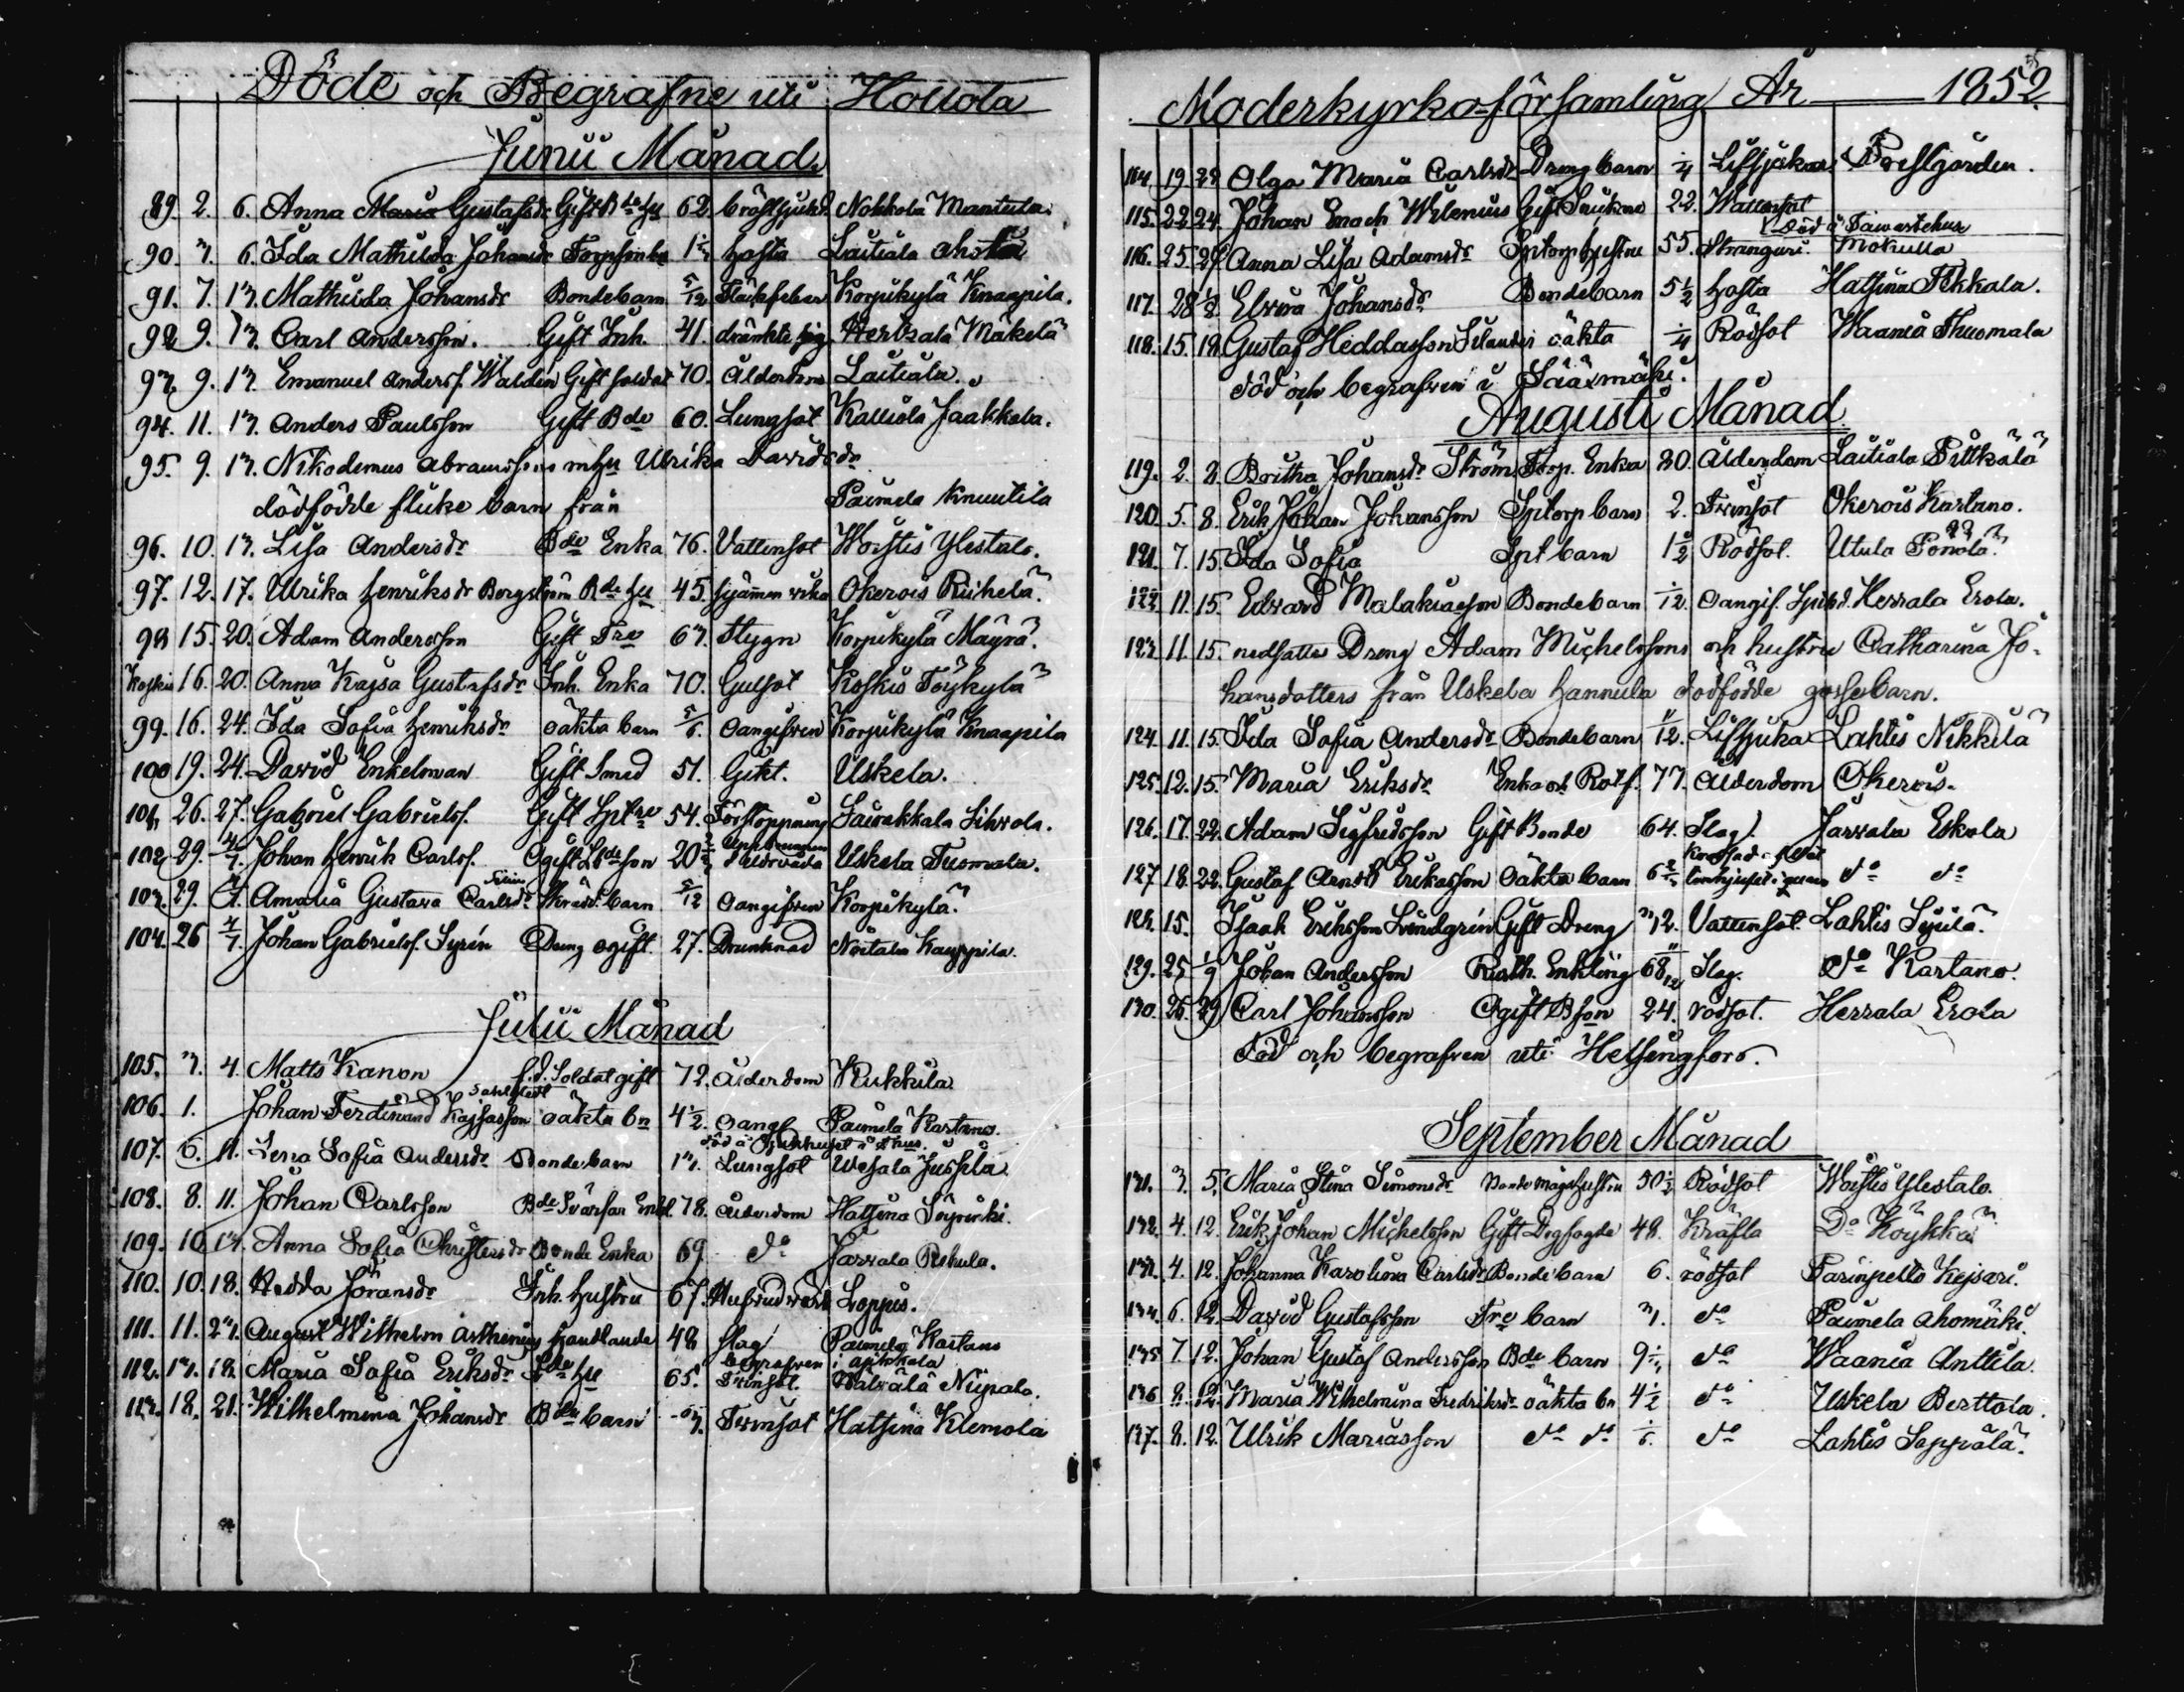 Döde och Begrafne uti Hollola
Junii Månad
89. 2. 6. Anna Maria Gustafsdr Gift Bde hu 62. bröstsjukd. Nokkola Manttela.
90. 3. 6. Ida Mathilda Johansdr Torpsonbn 1 1/2 hosta Laitiala Ahola
91. 7. 13. Mathilda Johansdr Bondebarn 5/12 Fläckfeber Korpikylä Knaapila.
92. 9. 13. Carl Andersson. Gift Inh. 41. dränkte sig Herrala Mäkelä
93. 9. 13. Emanuel Anderss. Waldin Gift soldat 70. Ålderdom Laitiala.
94. 11. 13. Anders Paulsson Gift Bde 60. Lungsot Kalliola Jaakkola.
95. 9. 13. Nikodemus Abramssons m hu Ulrika Davidsdr
dödfödde flicke barn från Paimela Knuutila
96. 10. 13. Lisa Andersdr Bde Enka 76. Vattensot Woistis Ylestalo.
97. 12. 17. Ulrika Henriksdr Bergström Bde hu 45. Okerois Riihelä.
98 15. 20. Adam Andersson Gift Tre 63. Stygn Korpikylä Mäyrä.
Koskis 16. 20. Anna Kajsa Gustafsdr Inh. Enka 70. Gulsot Koskis Töykylä
99. 16. 24. Ida Sofia Henriksdr oäkta barn 5/6. oangifven Korpikylä Knaapila
100 19. 24. David Enkelman Gift Smed 51. Gikt. Uskela.
101. 26. 27. Gabriel Gabrielss. Gift Sptre 54. Förstoppning Sairakkala Sihvola.
102 29. 4/7. Johan Henrik Carlss. Ogift Ldeson 20 Uskela Tuomala.
103. 29. 4. Amalia Gustava Carlsdr Skräd. barn 5/12 oangifven Korpikylä.
104. 26 4/7. Johan Gabrielss. Syrén Dreng ogift. 27. Drunknad Noitala Kauppila.
Julii Månad
105. 3. 4. Matts Kanon f.d. Soldat gift 72. Ålderdom Kukkila
106. 1. Johan Ferdinand Kajsasson oäkta bn 4 1/2. oangf Paimela Kartano.
död å Sjukhuset i Thus.
107. 6. 11. Lena Sofia Andersdr Bondebarn 13. Lungsot Uesala Jussila
108. 8. 11. Johan Carlsson Bde Svärfar Enkl. 78. Ålderdom Hatsina Söyrinki.
109. 10 13. Anna Sofia Christersdr Bonde Enka 69 do Jarvala Rekula.
110. 10. 18. Hedda Jöransdr Inh. hustru 67. Hufvudverk Loppis.
111. 11. 23. August Wilhelm Asthenius Handlande 48 slag Paimela Kartano
begrafven i Asikkala
112. 13. 18. Maria Sofia Eriksdr Lde hu 65. Trinsot. Nupala.
113. 18. 21. Wilhelmina Johansdr Bde barn 3. Trinsot Hatsina Klemola
Moderkyrko-församling År 1852.
114. 19. 22 Olga Maria Carlsdr Dreng barn 1/4 Lifsjukan Prestgården.
115. 22 24. Johan Enoch Wilenius Gift Snickare 22. Wattensot
död i Tawastehus
116. 25. 29. Anna Lisa Adamsdr Sptorp hustru 55. Stranguri. Mokulla
117. 28 1/8. Elvira Johansdr Bondebarn 5 1/2 hosta Hatsina Pekkala.
118. 15. 18. Gustaf Heddasson Silander oäkta 1/4 Rödsot Waania Thuomala
död och begrafven i Sääxmäki.
Augusti Månad
119. 2. 8. Britha Johansdr Ström Torp. Enka 80. Ålderdom Laitiala Pitkälä
120. 5. 8. Erik Johan Johansson Sptorp barn 2. Trinsot Okerois Kartano.
121. 7. 15. Ida Sofia Spt barn 1 1/2 Rödsot. Utula
122. 11. 15. Edvard Malakiasson Bondebarn 1/12. oangif. Sjukd. Herrala Erola.
123. 11. 15. nedsatta Dreng Adam Michelssons och hustru Catharina Jo-
hansdotters från Uskela Hannula dödfödde gossebarn.
124. 11. 15. Ida Sofia Andersdr Bondebarn 11/12. Lifsjuka Lahtis Nikkilä
125. 12. 15. Maria Eriksdr Enka 77. Ålderdom Okerois.
126. 17. 22. Adam Sigfredsson Gift Bonde 64. Slag. Jarvala Eskola
127 18. 22. Gustaf Arvid Eriksson oäkta barn 6 do do
128. 15. Isaak Eriksson Lindgrén Gift Dreng 32. Vattensot. Lahtis Sipilä.
129. 25 1/9 Johan Andersson Rusth. Enkling 68 11/12 Slag. do Kartano.
130. 26. 29 Carl Johansson Ogift Bson 24. rödsot. Herrala Erola
död och begrafven uti Helsingfors.
September Månad
131. 3. 5. Maria Stina Simonsdr Bonde mågs hustru 30 1/2 Rödsot Woistis Ylestalo.
132. 4. 12. Erik Johan Michelsson Gift 48. Kräfta Do Köykkä
133. 4. 12. Johanna Karolina Carlsdr Bondebarn 6. rödsot Parinpelto Kejsari.
134. 6. 12. David Gustafsson Tre barn 3. do Paimela Ahomäki.
135 7. 12. Johan Gustaf Andersson Bde barn 9 do Waania Anttila.
136 8. 12. Maria Wilhelmina Fredriksdr oäkta bn 4 1/2 do Uskela Berttola.
137. 8. 12. Ulrik Mariasson do do 1/6. do Lahtis Seppälä.